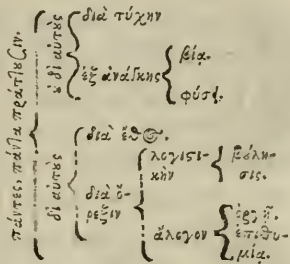 πάντες, πάντα πράτȣσιν.
ȣ̓ δι᾽ αὑτȣ̀ς
διὰ τύχην
ἐξ ἀνάγκης
βίᾳ.
φύσει.
δι᾽ αὑτȣ̀ς
διὰ ἔθος.
διὰ ὄ-
ρεξιν
λογιστι-
κὴν
βȣ́λη-
σις.
ἄλογον
ὀργὴ.
ἐπιθυ-
μία.